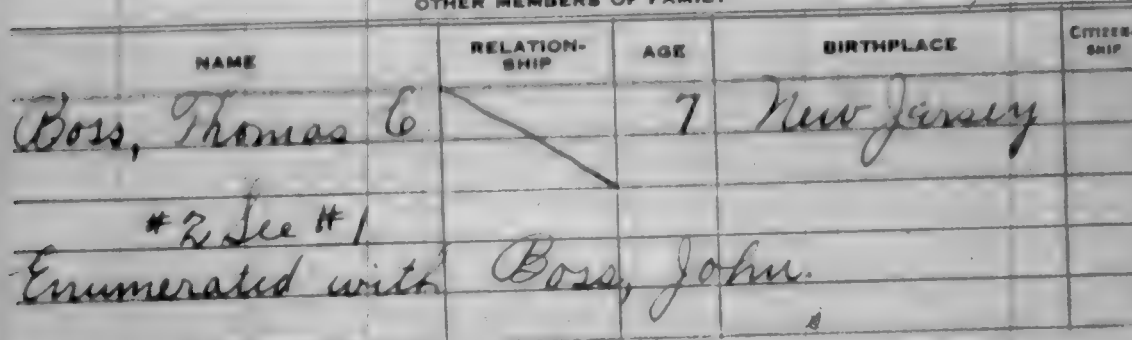 OTHER MEMBERS OF FAMILY
NAME RELATION-SHIP AGE BIRTHPLACE CITIZEN-SHIP
Boss, Thomas 6 7 New Jersey
#2 See #1
Enumerated with Boss, John.